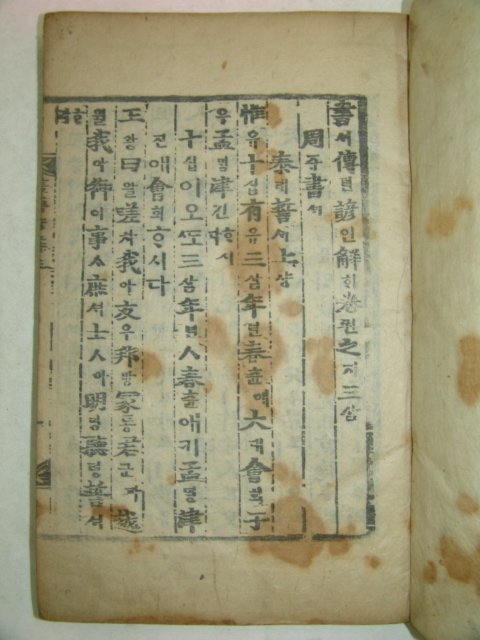 書셔傳뎐諺언解ᄒᆡ卷권之지三삼
周쥬書셔
泰태誓셔上샹
惟유十십有유三삼年년春츈애大대會회于
우孟ᄆᆡᆼ津진ᄒᆞ시
十십이오ᄯᅩ三삼年년ㅅ春츈애키孟ᄆᆡᆼ津
진애會회ᄒᆞ시다
王왕曰왈嗟차我아友우邦방冢통君군과越
월我아御어事ᄉᆞ庶셔士ᄉᆞ아明명聽텽誓셔